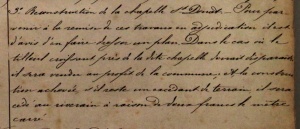 3° Reconstruction de la chapelle St Divit. Pour par
venir à la remise de ces travaux en adjudication il est
d'avis d'en faire dresser un plan. Dans le cas où le
tilleul croissant près de la dite chapelle devrait disparaître
il sera vendu au profit de la commune; et la construc
tion achevée s'il reste un excédant de terrain il sera
cédé au riverain à raison de deux francs le mètre
carré